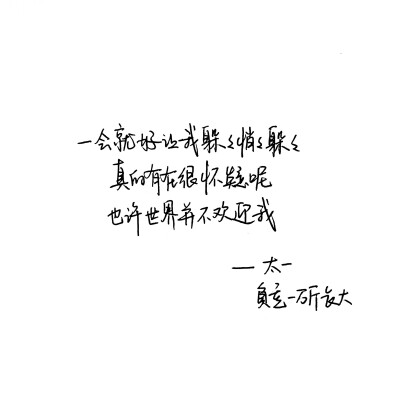 一会就好让我躲々悄々躲々
真的有在很怀疑呢
也许世界并不欢迎我
— 太一
负重一万斤长大